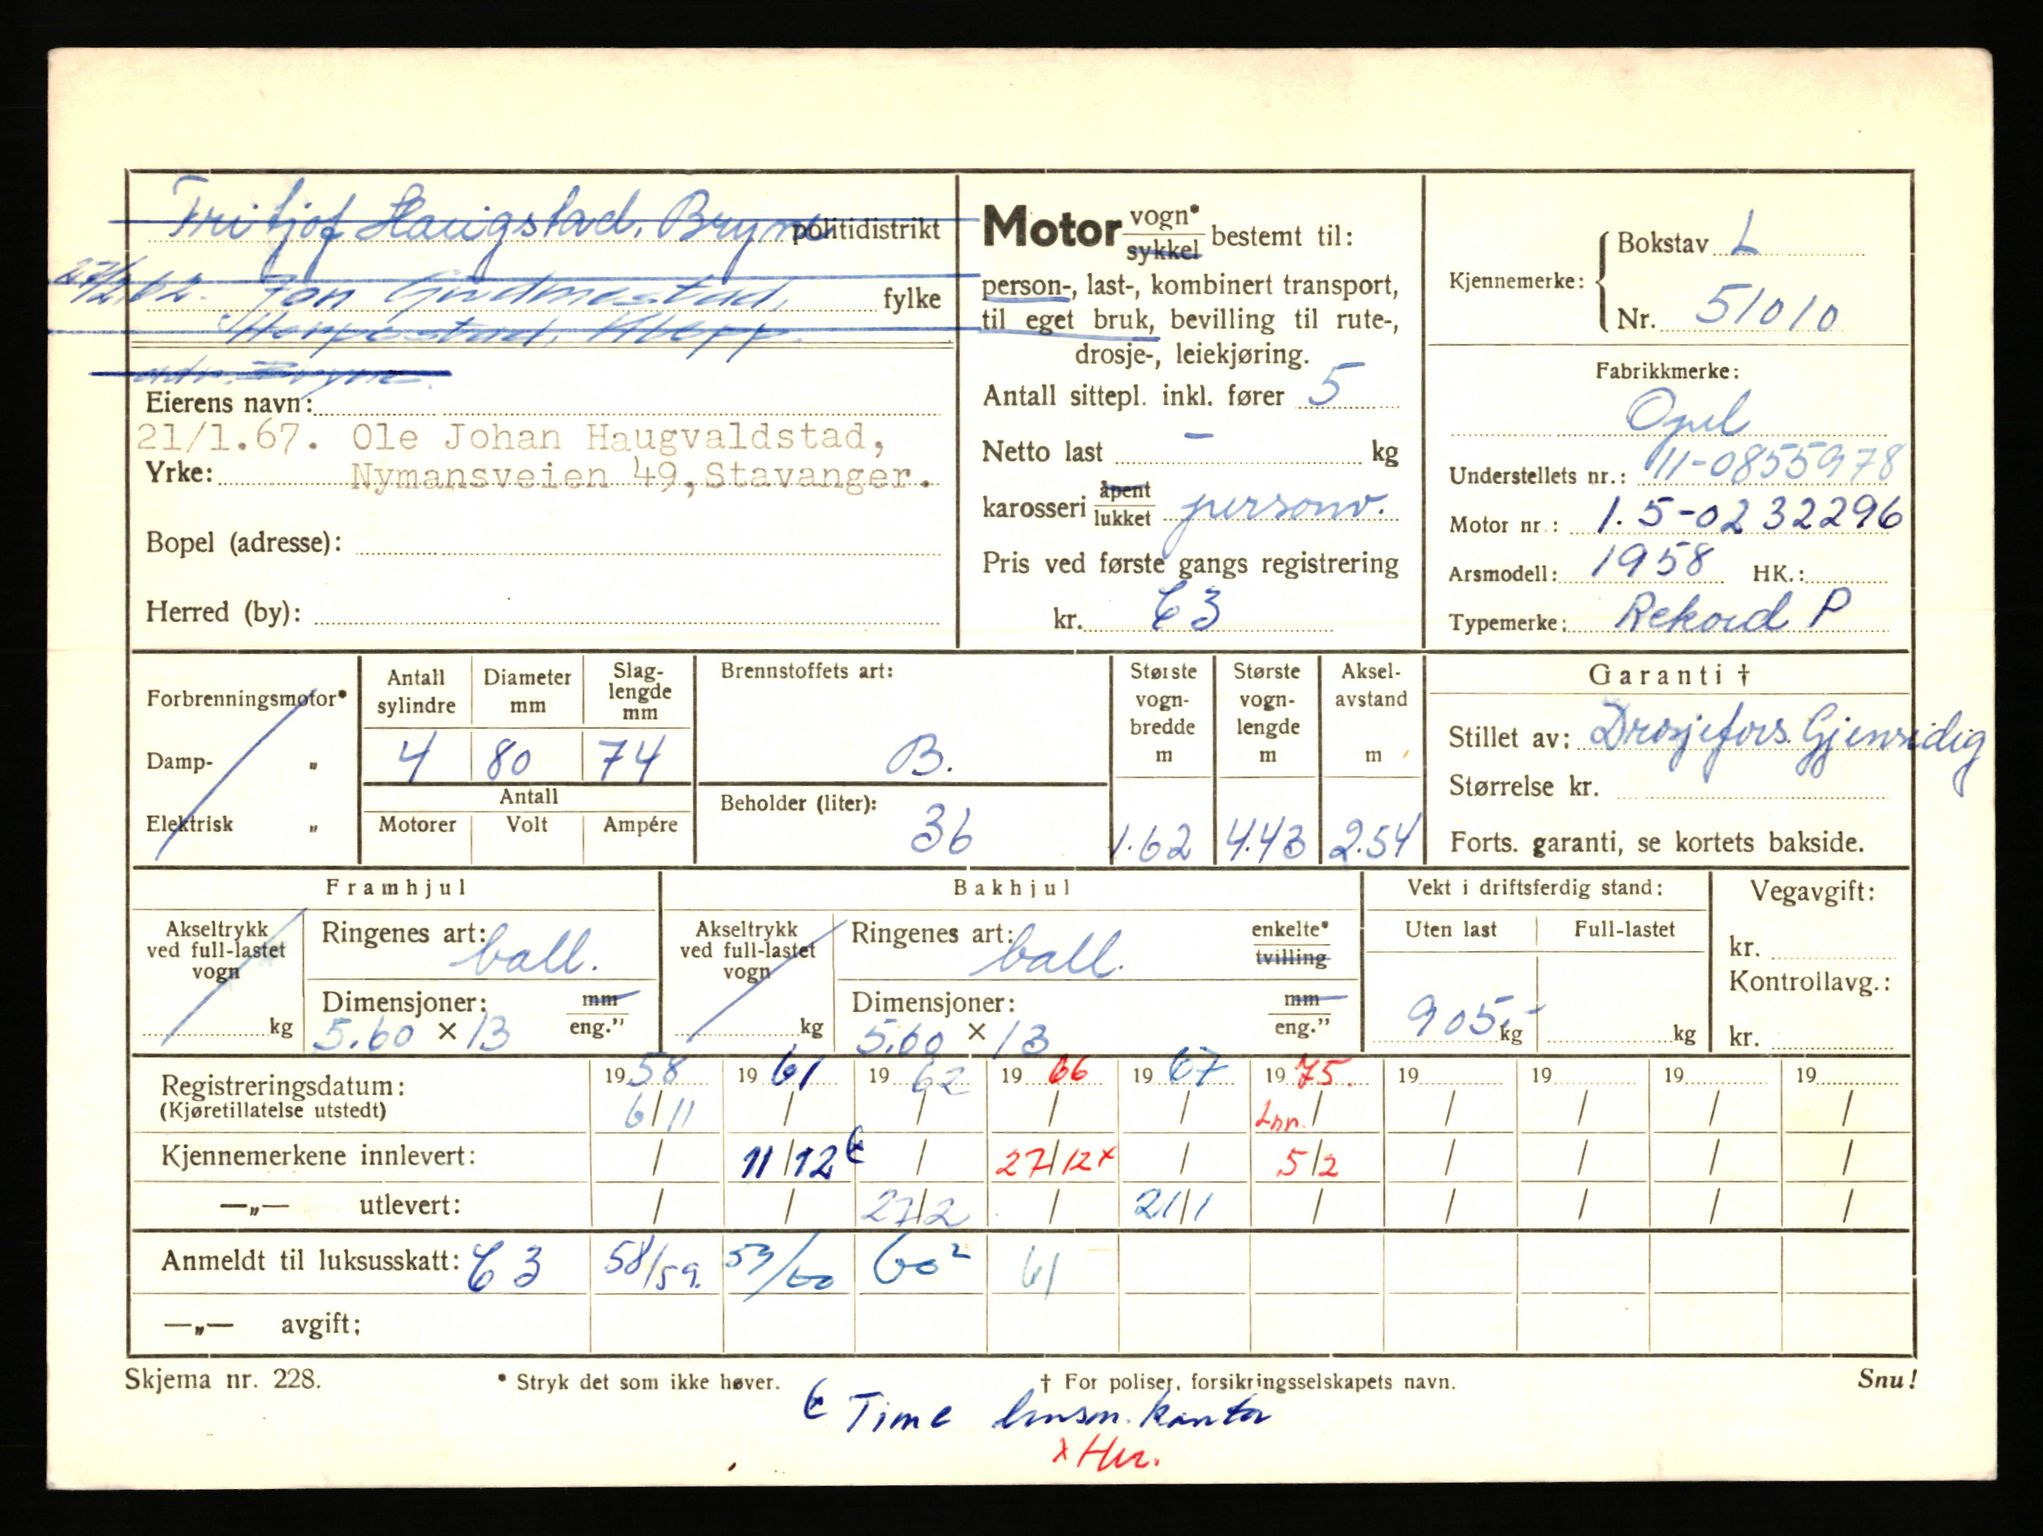 Fritjof Haugstad, Bryne politidistrikt
27/2.62. Jon Gudmestad, fylke
Horpestad, Klepp.
adr. Bryne.
Eierens navn:
21/1.67. Ole Johan Haugvaldstad,
Yrke: Nymansveien 49, Stavanger.
Bopel (adresse):
Herred (by):
Motor vogn* sykkel bestemt til:
person-, last-, kombinert transport,
til eget bruk, bevilling til rute-,
drosje-, leiekjøring.
Antall sittepl. inkl. fører 5
Netto last - kg
karosseri åpent lukket personv.
Pris ved første gangs registrering
kr. C3
Kjennemerke: Bokstav L
Nr. 51010
Fabrikkmerke:
Opel
Understellets nr.: 11-0855978
Motor nr.: 1.5-0232296
Arsmodell: 1958 HK.:
Typemerke: Rekord P
Forbrenningsmotor*
Damp- „
Elektrisk „
Antall sylindre 4
Diameter mm 80
Slaglengde mm 74
Antall
Motorer Volt Ampére
Brennstoffets art:
B.
Beholder (liter):
36
Største vognbredde m 1.62
Største vognlengde m 4.43
Akselavstand m 2.54
Garanti †
Stillet av: Drosjefors. Gjensidig
Størrelse kr.
Forts. garanti, se kortets bakside.
Framhjul
Akseltrykk ved full-lastet vogn kg
Ringenes art: ball.
Dimensjoner: mm
5.60 × 13 eng."
Bakhjul
Akseltrykk ved full-lastet vogn kg
Ringenes art: ball. enkelte* tvilling
Dimensjoner: mm
5.60 × 13 eng."
Vekt i driftsferdig stand:
Uten last Full-lastet
905,- kg kg
Vegavgift:
kr.
Kontrollavg.:
kr.
Registreringsdatum: 1958 1961 1962 1966 1967 1975. 19 19 19 19
(Kjøretillatelse utstedt) 6/11 / / / / Lnn. / / / / /
Kjennemerkene innlevert: / 11/12 / 27/12x / 5/2 / / / /
—„— utlevert: / / 27/2 / 21/1 / / / / /
Anmeldt til luksusskatt: C3 58/59. 59/60 60² 61
—„— avgift:
Skjema nr. 228. * Stryk det som ikke høver. † For poliser, forsikringsselskapets navn. Snu!
Time lensm. kontor
x Her.